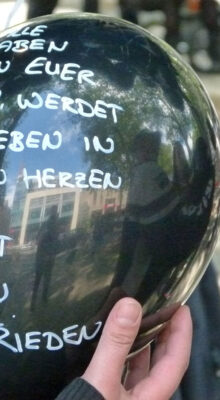 LLE
ABEN
EUER
WERDET
EBEN IN
HERZEN
T
RIEDEN